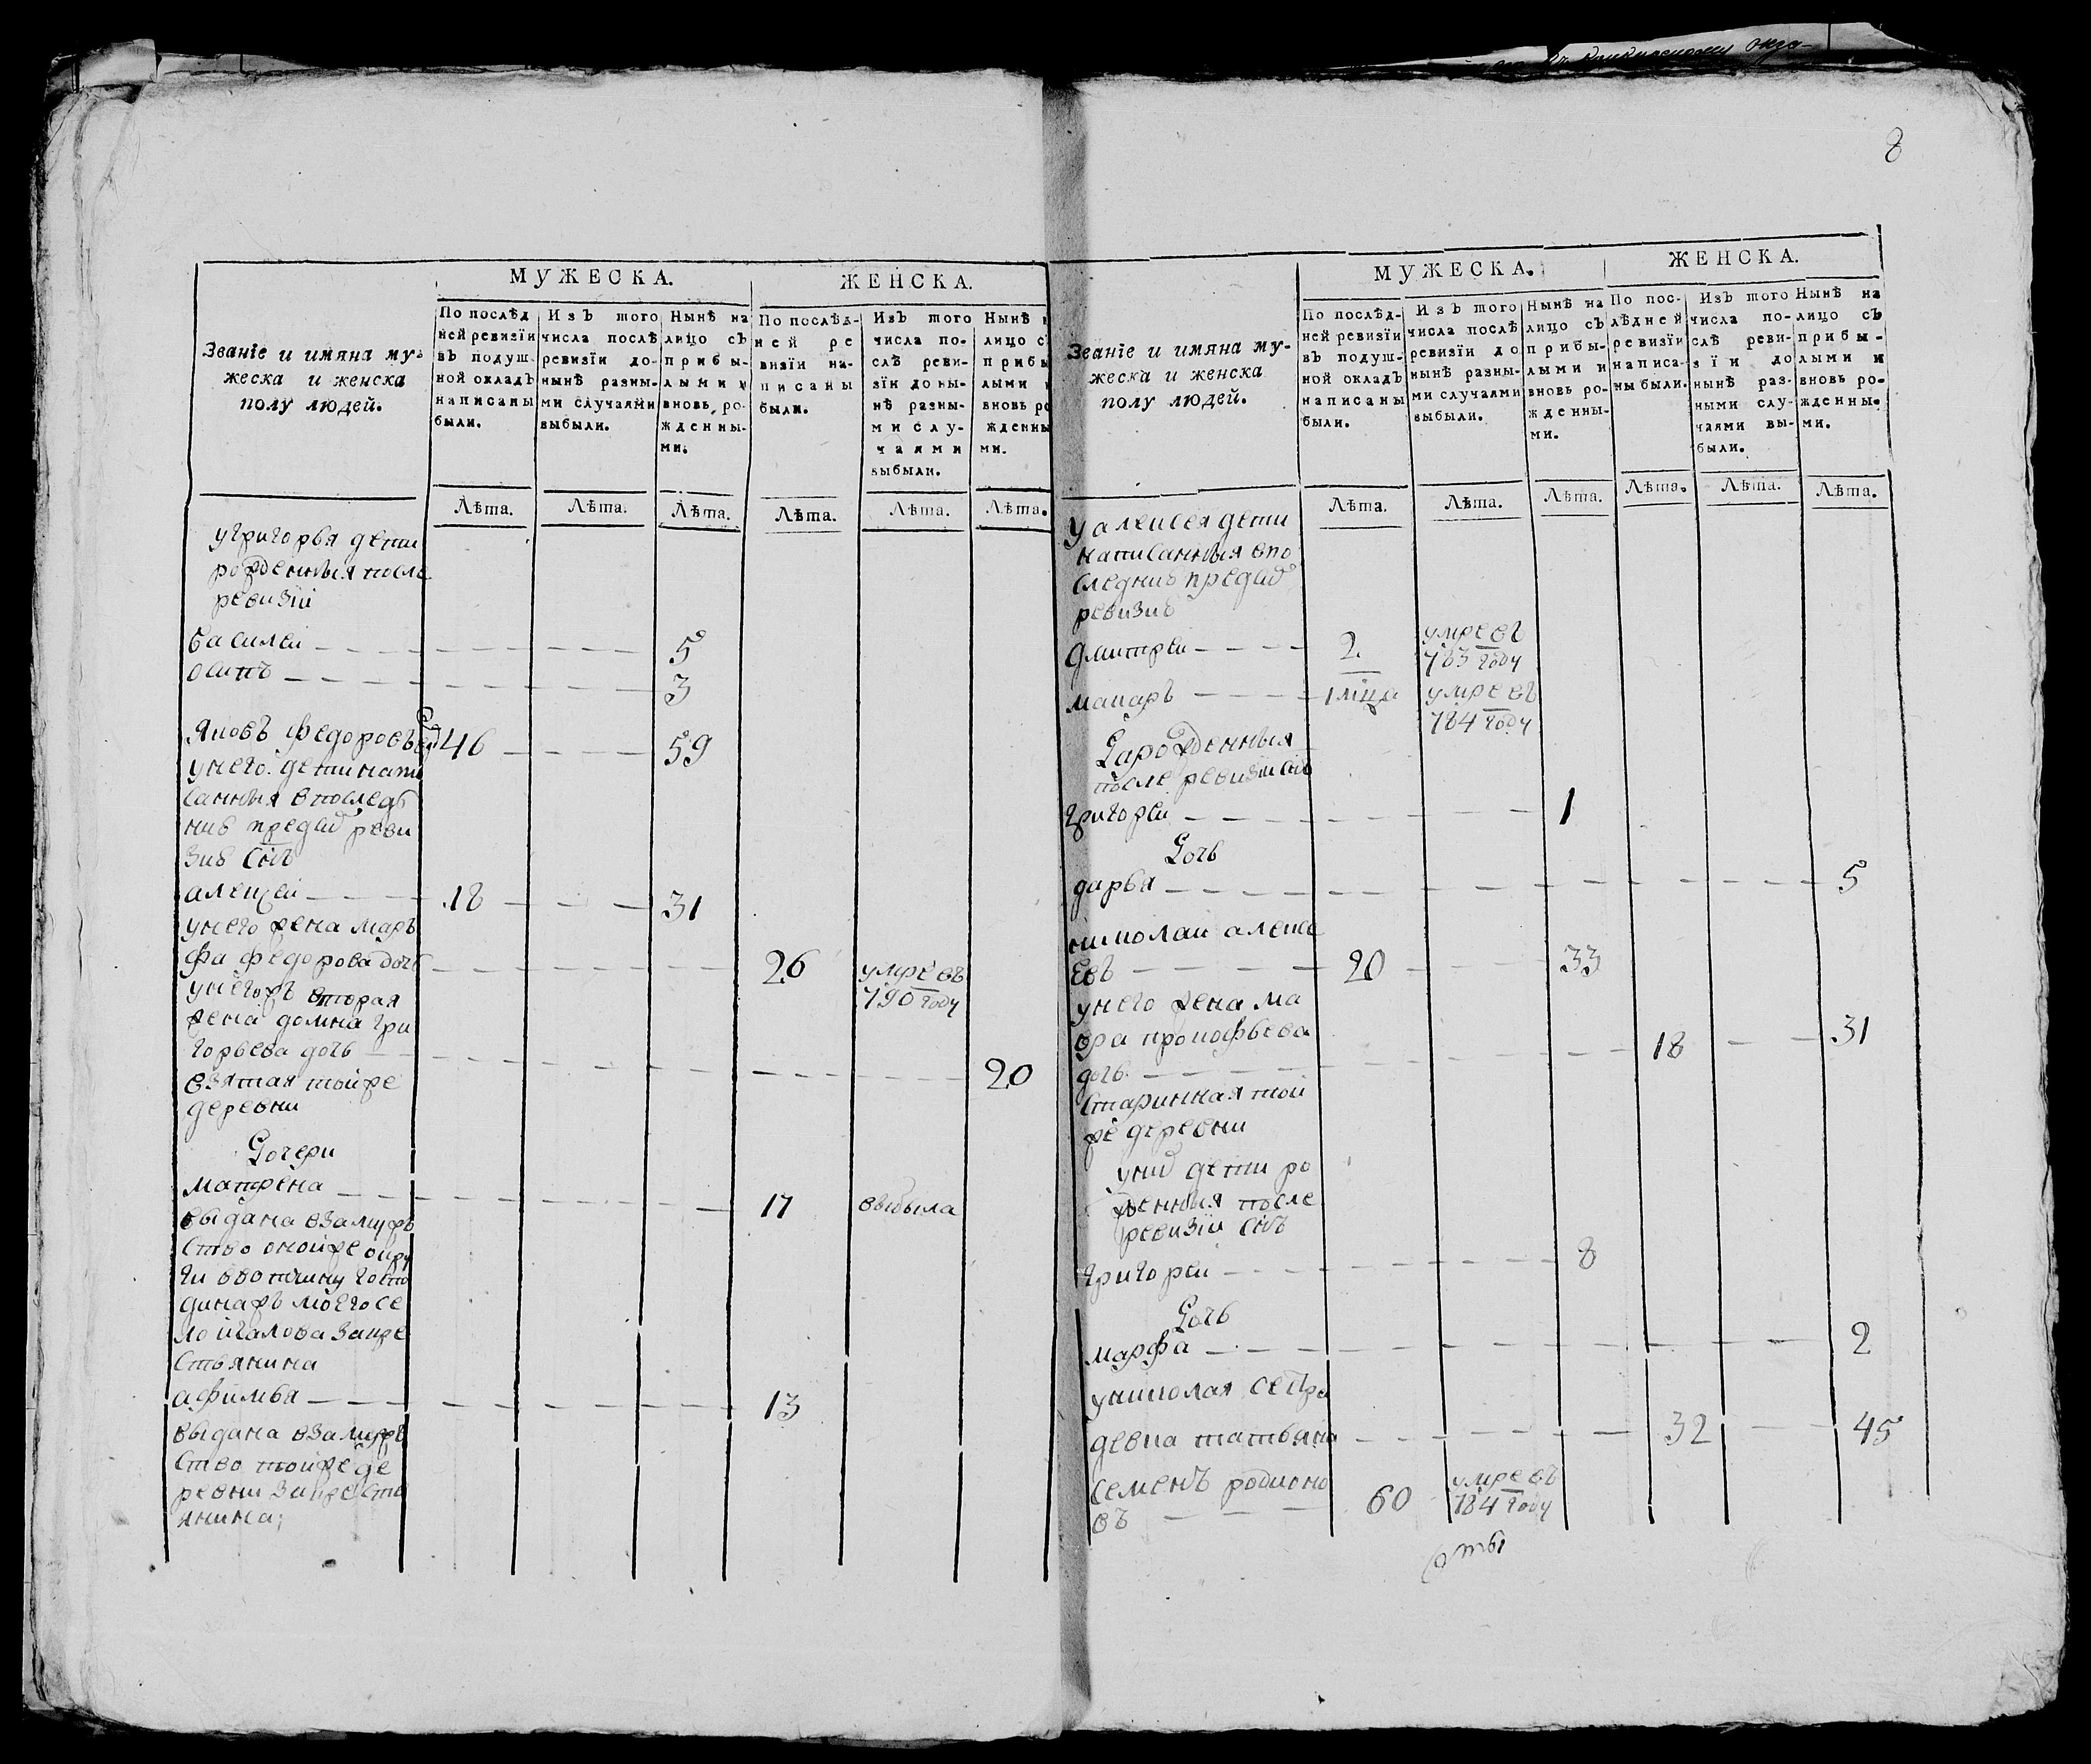 8
МУЖЕСКА.
ЖЕНСКА.
Званіе и имяна му-
жеска и женска
полу людей.
По послѣд
ней ревизіи
въ подуш-
ной окладъ
написаны
были.
Изъ того
числа послѣ
ревизіи до-
нынѣ разны-
ми случаями
выбыли.
Нынѣ на
лицо съ
прибы-
лыми и
вновь ро-
жденны-
ми.
По послѣд-
ней ре
визіи на-
писаны
были.
Изъ того
числа по-
слѣ реви-
зіи до ны-
нѣ разны-
ми слу-
чаями
выбыли.
Нынѣ
лицо с
прибы
лыми
вновь ро
жденны
ми.
Лѣта. Лѣта. Лѣта. Лѣта. Лѣта. Лѣта.
у григорья дети
рожденныя после
ревизіи
василеи 5
осипъ 3
яковъ федоровъ 46 59
у него дети напи
санныя впослед
нив предид реви
зив снъ
алеѯеи 18 31
у него жена маръ
фа федорова дочь 26 умре въ
790 году
у негожъ вторая
жена домна гри
горьева дочь 20
взятая тойже
деревни
Дочери
матрена 17 выбыла
выдана взамужъ
ство онойже окру
ги ввотчину госпо
динажъ моего се
ло
закре
стьянина
афимья 13
выдана взамужъ
ство тойже де
ревни закрестья
янина;
МУЖЕСКА.
ЖЕНСКА.
Званіе и имяна му-
жеска и женска
полу людей.
По послѣд-
ней ревизіи
въ подуш-
ной окладъ
написаны
были.
Изъ того
числа послѣ
ревизіи до
нынѣ разны-
ми случаями
выбыли.
Нынѣ на
лицо съ
прибы-
лыми и
вновь ро-
жденны-
ми.
По пос-
лѣдней
ревизіи
написа-
ны были.
Изъ того
числа по-
слѣ реви-
зіи до
нынѣ раз-
ными слу-
чаями вы-
были.
Нынѣ на
лицо съ
прибы-
лыми и
вновь ро-
жденны-
ми.
Лѣта. Лѣта. Лѣта. Лѣта. Лѣта. Лѣта.
у алексея дети
написанныя впо
следнив предид
ревизив
дмитреи 2 умре въ
783 году
макаръ 1 мцъ умре въ
784 году
Зарожденныя
после ревизіи снъ
григореи 1
Дочь
дарья 5
николаи алексе
евъ 20 33
у него жена ма
вра прокофьева
дочь 18 31
старинная той
же деревни
у нид дети ро
жденныя после
ревизіи снъ
григореи 8
Дочь
марфа 2
у николая сестра
девка татьяна 32 45
семенъ родионо
въ 60 умре въ
784 году